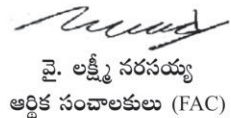 వై. లక్ష్మీ నరసయ్య
ఆర్థిక సంచాలకులు (FAC)